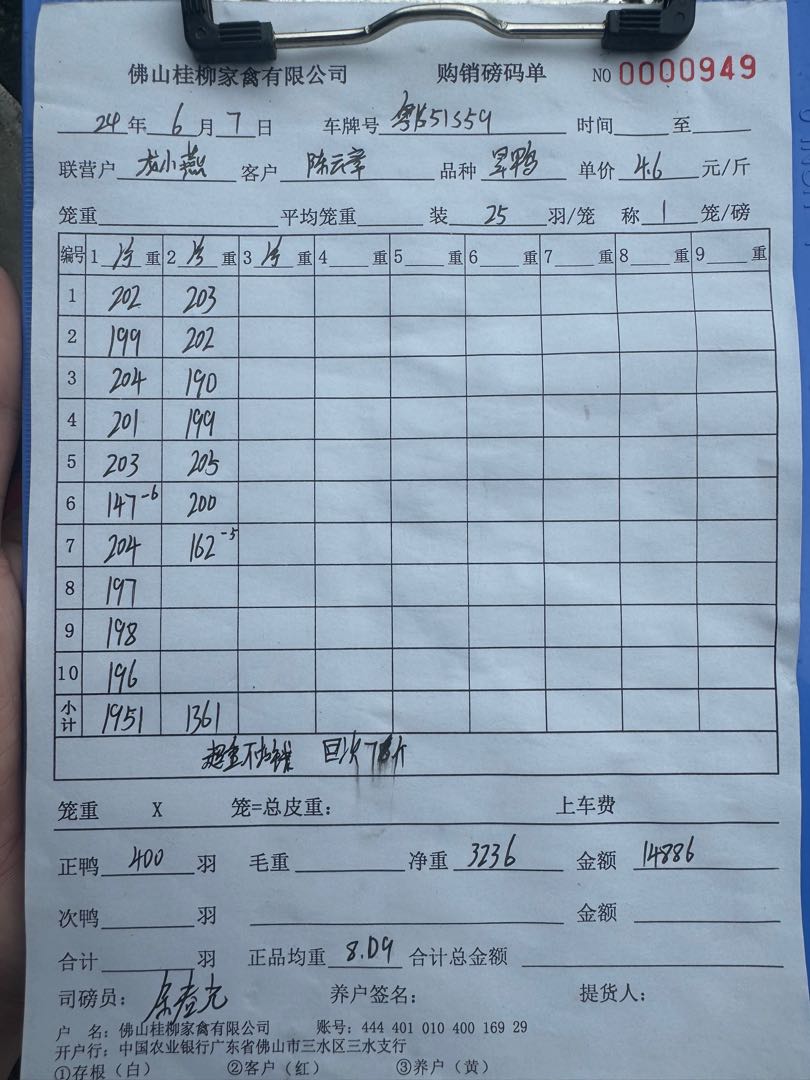 佛山桂柳家禽有限公司 购销磅码单 NO 0000949
24年6月7日 车牌号 粤 51S59 时间 至
联营户 龙小燕 客户 陈云章 品种 单价 4.6 元/斤
笼重 平均笼重 装 25 羽/笼 称 1 笼/磅
编号 1 重 2 重 3 重 4 重 5 重 6 重 7 重 8 重 9 重
1 202 203
2 199 202
3 204 190
4 201 199
5 203 205
6 147-6 200
7 204 162-5
8 197
9 198
10 196
小计 1951 1361
超重不 回次 斤
笼重 X 笼=总皮重： 上车费
正鸭 400 羽 毛重 净重 3236 金额 14886
次鸭 羽 金额
合计 羽 正品均重 8.09 合计总金额
司磅员： 养户签名： 提货人：
户 名：佛山桂柳家禽有限公司 账号：444 401 010 400 169 29
开户行：中国农业银行广东省佛山市三水区三水支行
①存根（白） ②客户（红） ③养户（黄）